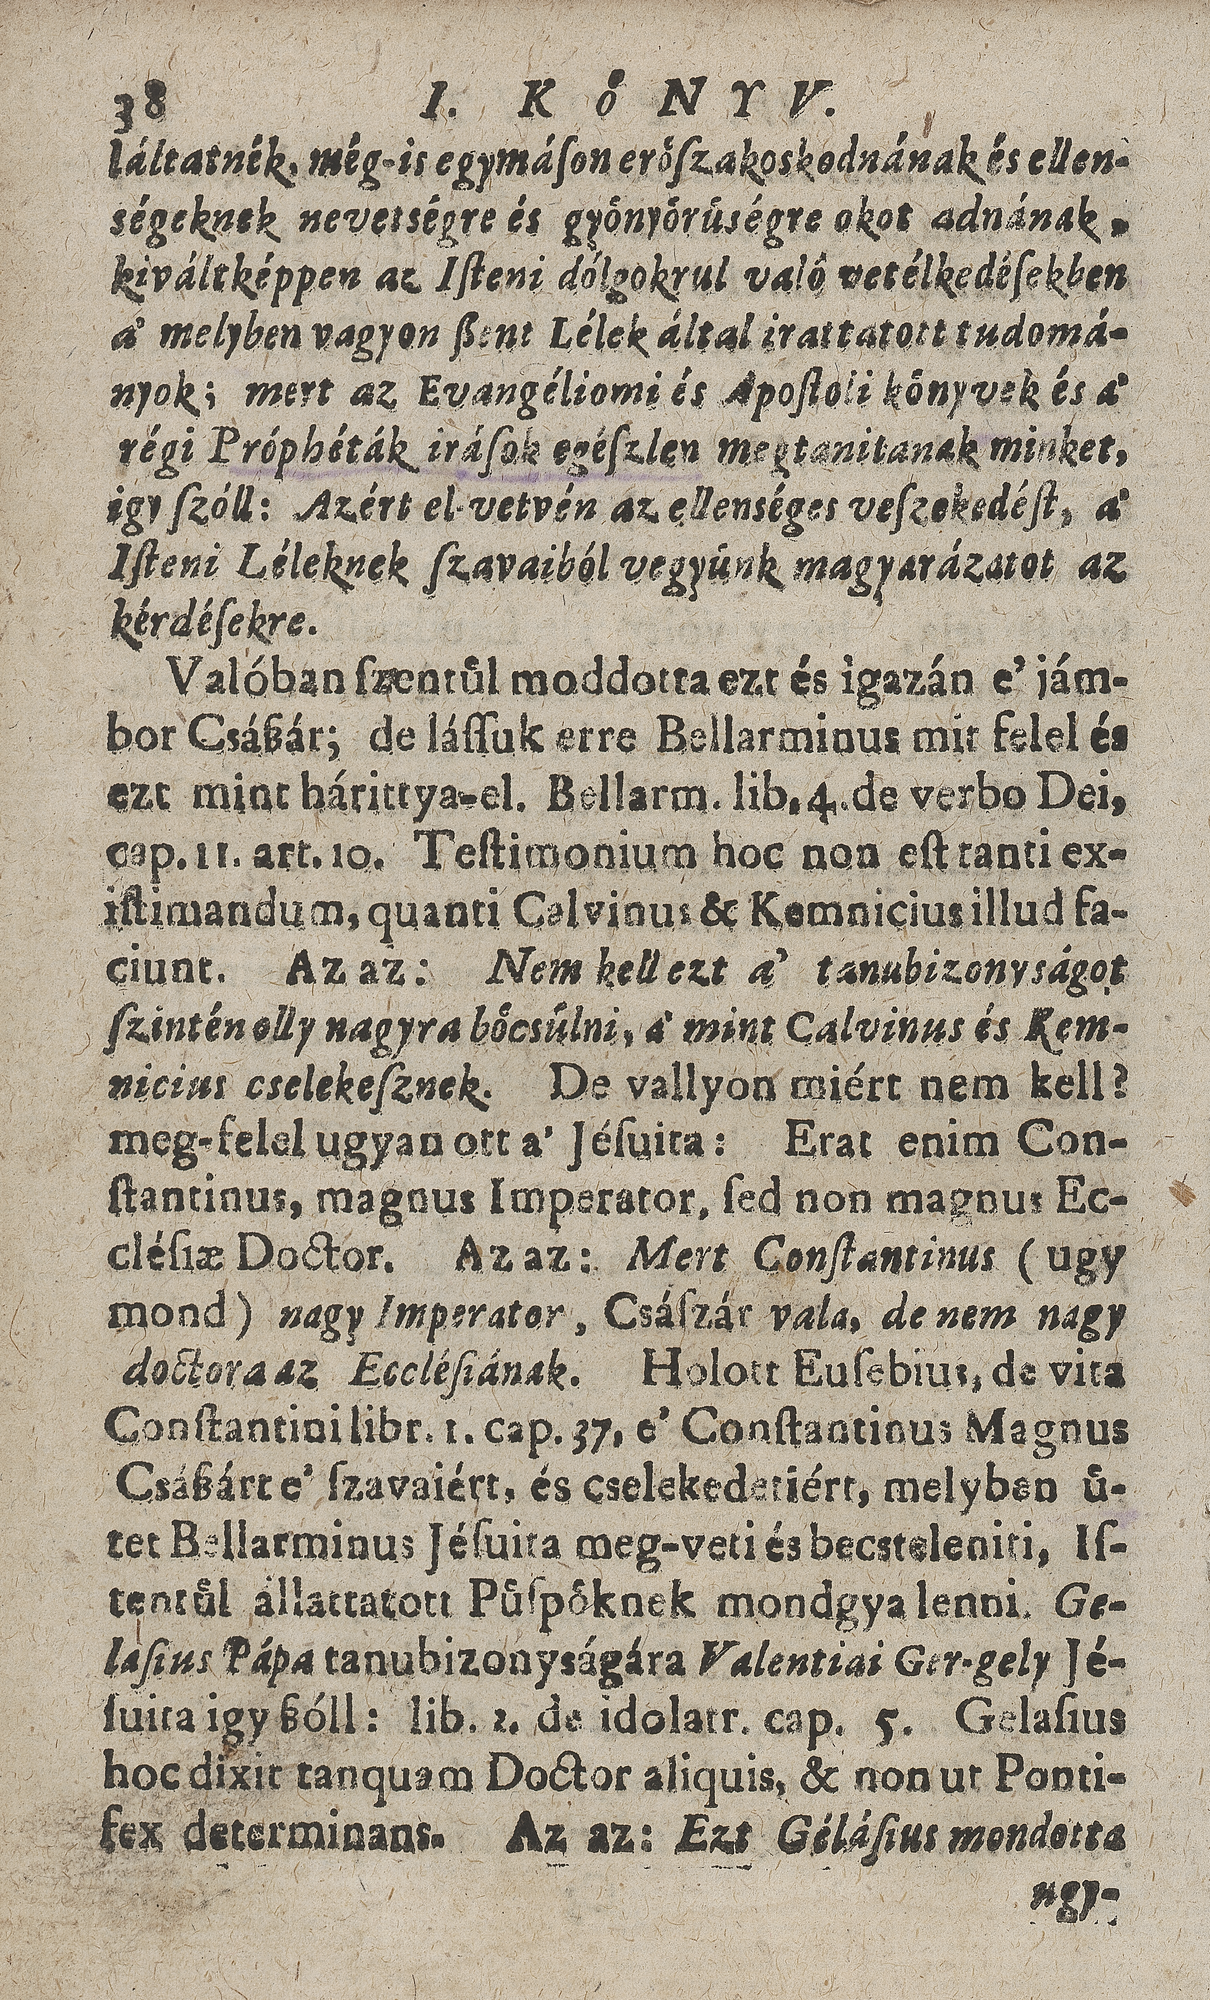 38 I. KőNYV.
láltatnék, még-is egymáſon erőſzakoskodnának és ellen-
ségeknek nevetségre és gyönyörüségre okot adnának,
kiváltképpen az Iſteni dólgokrul való vetélkedéſekben
a' melyben vagyon ßent Lélek által irattatott tudomá-
nyok; mert az Evangéliomi és Apoſtoli könyvek és a'
régi Próphéták iráſok egéſzlen megtanitanak minket,
igy ſzóll: Azért el-vetvén az ellenséges veſzekedéſt, a'
Iſteni Léleknek ſzavaiból vegyünk magyarázatot az
kérdéſekre.
Valóban ſzentůl moddotta ezt és igazán e' jám-
bor Csáßár; de láſſuk erre Bellarminus mit felel és
ezt mint hárittya-el. Bellarm. lib. 4. de verbo Dei,
cap. 11. art. 10. Teſtimonium hoc non eſt tanti ex-
iſtimandum, quanti Calvinus & Kemnicius illud fa-
ciunt. Az az: Nem kell ezt a' tanubizonyságot
ſzintén olly nagyra bőcsůlni, a' mint Calvinus és Kem-
nicius cselekeſznek. De vallyon miért nem kell?
meg-felel ugyan ott a' Jéſuita: Erat enim Con-
ſtantinus, magnus Imperator, ſed non magnus Ec-
cléſiæ Doctor. Az az: Mert Conſtantinus (ugy
mond) nagy Imperator, Csáſzár vala, de nem nagy
doctora az Eccléſiának. Holott Euſebius, de vita
Conſtantini libr. 1. cap. 37, e' Conſtantinus Magnus
Csáßárt e' ſzavaiért, és cselekedetiért, melyben ů-
tet Bellarminus Jéſuita meg-veti és becsteleniti, Iſ-
tentůl állattatott Půſpőknek mondgya lenni. Ge-
laſius Pápa tanubizonyságára Valentiai Ger-gely Jé-
ſuita igy ßóll: lib. 2. de idolatr. cap. 5. Gelaſius
hoc dixit tanquam Doctor aliquis, & non ut Ponti-
fex determinans. Az az: Ezt Géláſius mondotta
ugy-